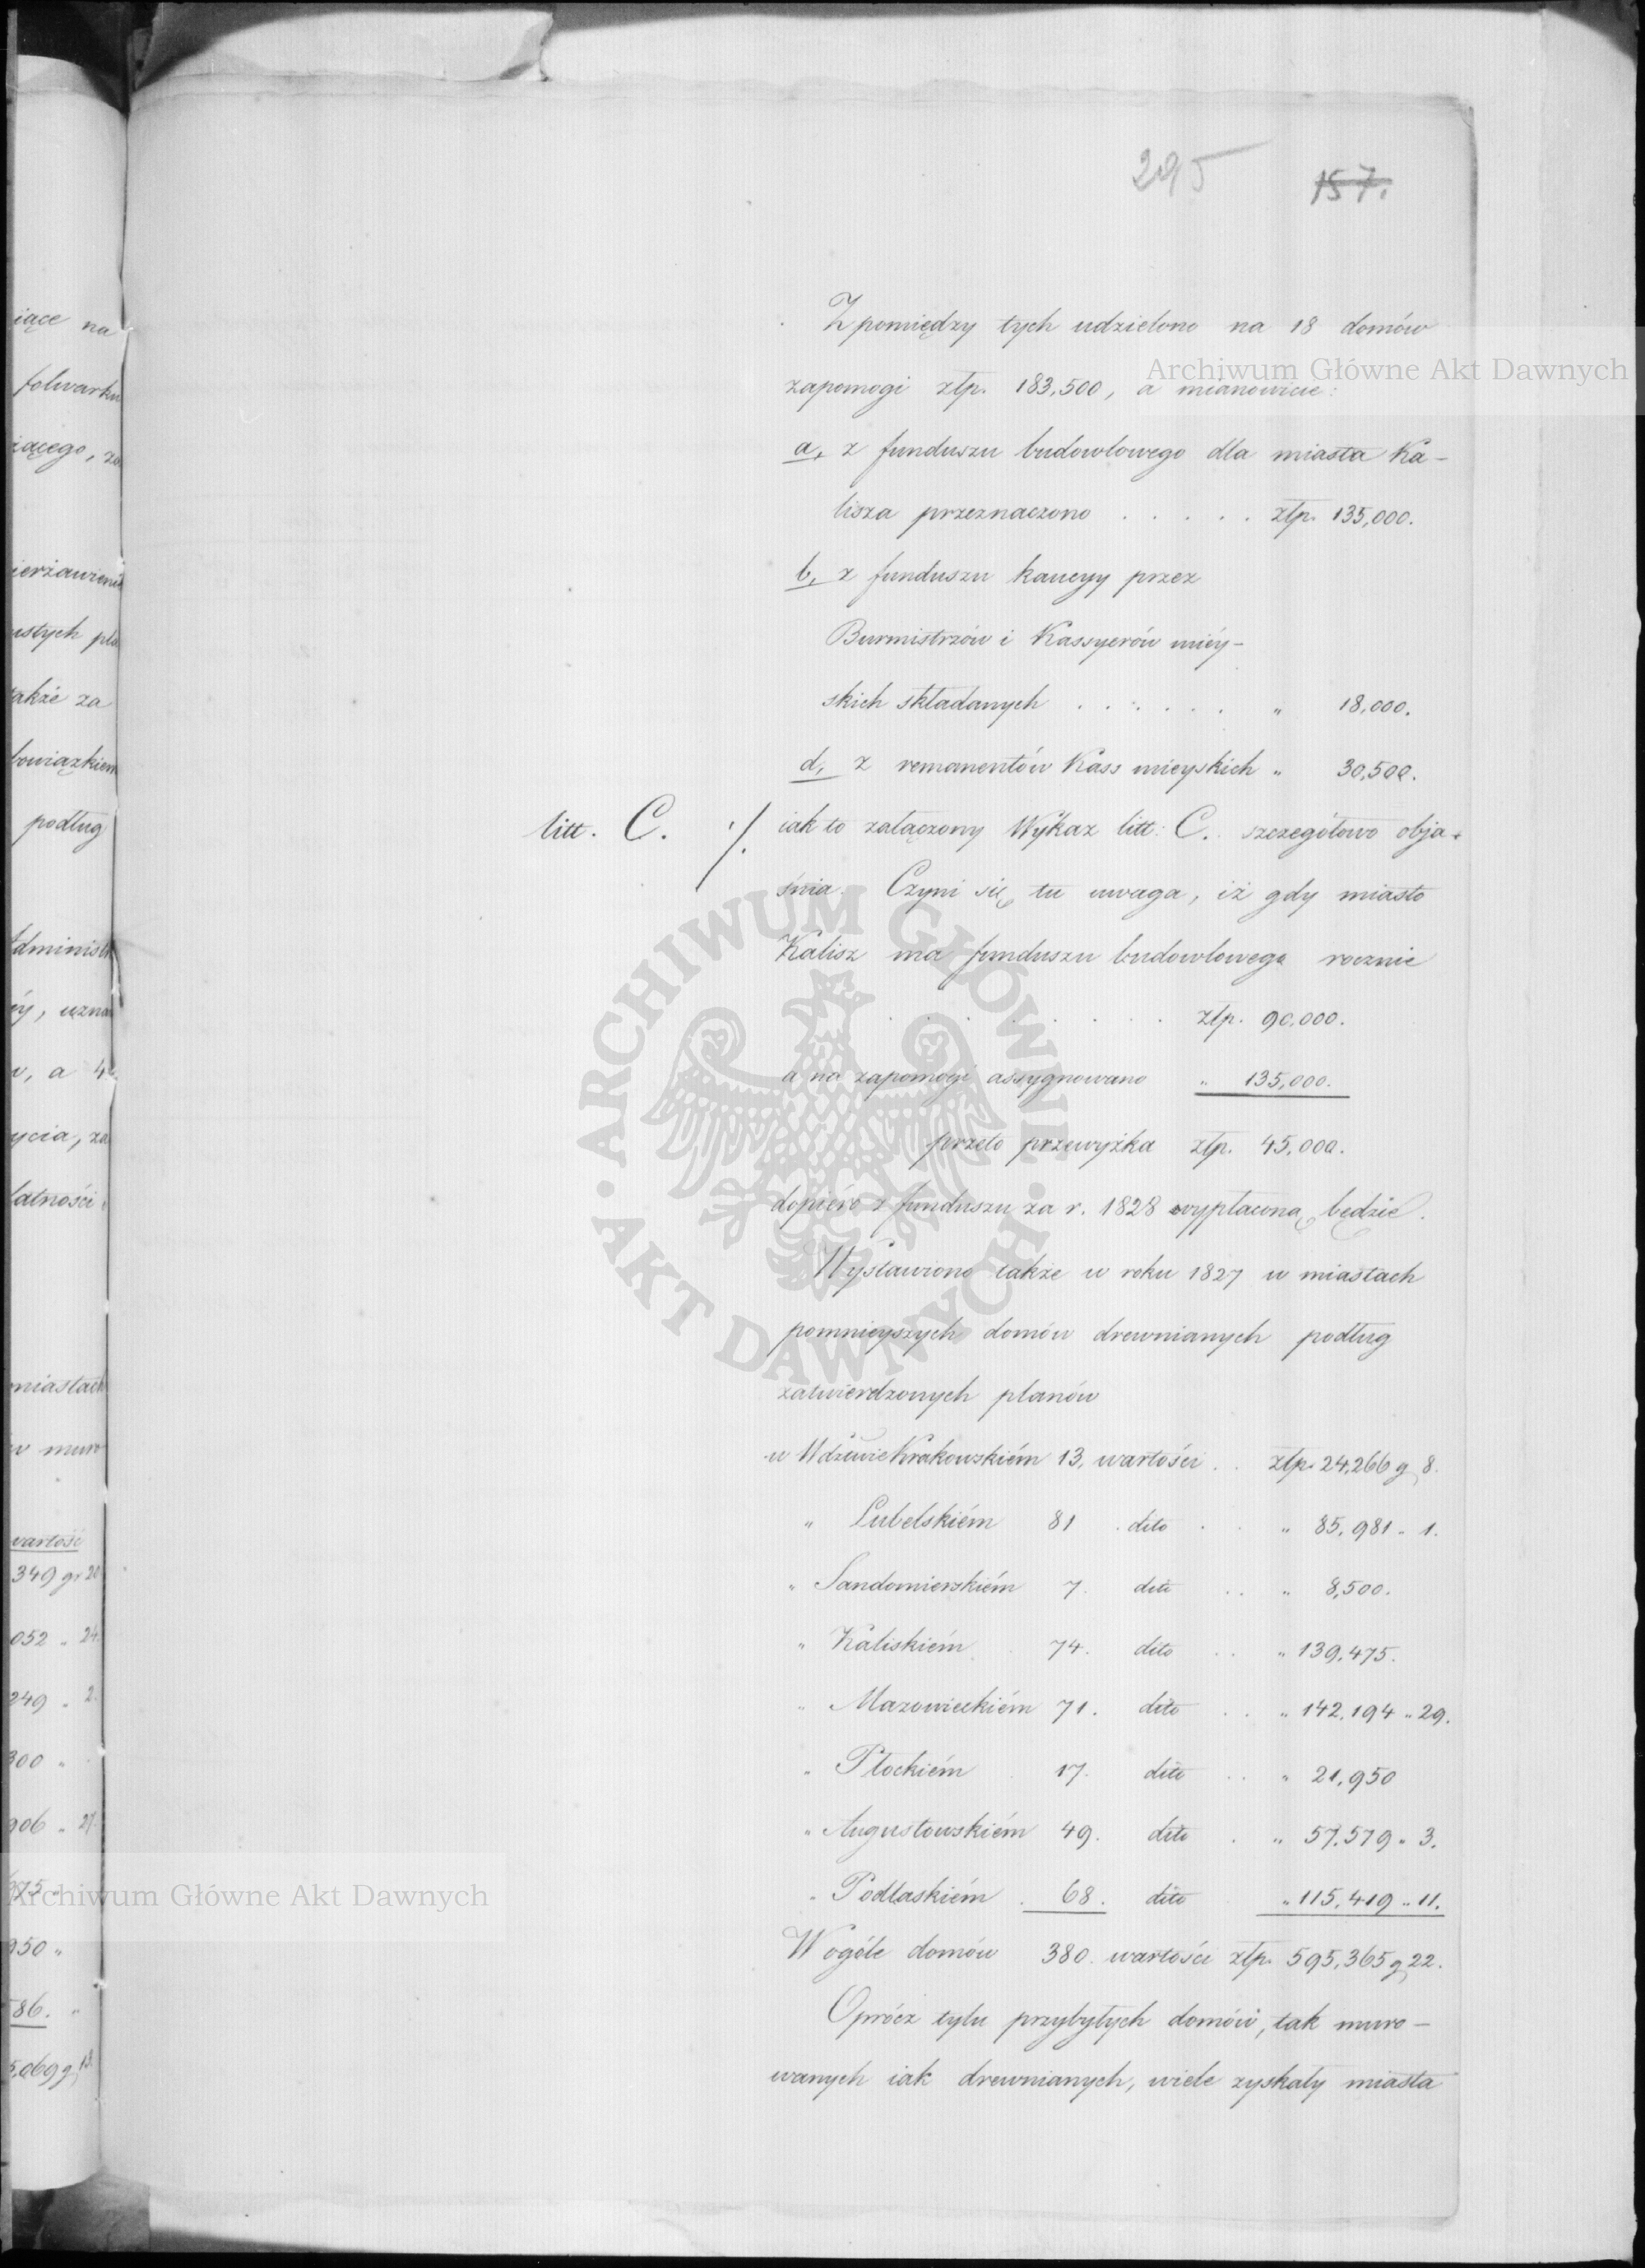 295 157.
Z pomiędzy tych udzielono na 18 domów
zapomogi złp. 183,500, a mianowicie:
a, z funduszu budowlowego dla miasta Ka-
lisza przeznaczono . . . . . złp. 135,000.
b, z funduszu kaucyy przez
Burmistrzów i Kassyerów miéy-
skich składanych . . . . . . " 18,000.
d, z remanentów Kass mieyskich " 30,500.
litt. C. ·/. iak to załączony Wykaz litt: C. szczegółowo obja-
śnia. Czyni się tu uwaga, iż gdy miasto
Kalisz ma funduszu budowlowego rocznie
. . . . . złp. 90,000.
a na zapomogi assygnowano " 135,000.
przeto przewyżka złp. 45,000.
dopiéro z funduszu za r. 1828 wypłaconą będzie.
Wystawiono także w roku 1827 w miastach
pomnieyszych domów drewnianych podług
zatwierdzonych planów
w Wdztwie Krakowskiém 13, wartości . . złp. 24,266 g 8.
" Lubelskiém 81 . dito . . " 85,981 " 1.
" Sandomierskiém 7. dito . . " 8,500.
" Kaliskiém . 74. dito . . " 139,475.
" Mazowieckiém 71. dito . . " 142,194 " 29.
" Płockiém . 17. dito . . " 21,950
" Augustowskiém 49. dito . " 57,579 " 3.
" Podlaskiém . 68. dito " 115,419 " 11.
W ogóle domów 380. wartości złp. 595,365 g 22.
Oprócz tylu przybyłych domów, tak muro-
wanych iak drewnianych, wiele zyskały miasta
iące na
folwarku
podług
także za
miastach
wartość
349 gr 20
052 " 24
249 " 2.
300 "
906 " 27.
950 "
86. "
Archiwum Główne Akt Dawnych
ARCHIWUM GŁÓWNE · AKT DAWNYCH ·
Archiwum Główne Akt Dawnych